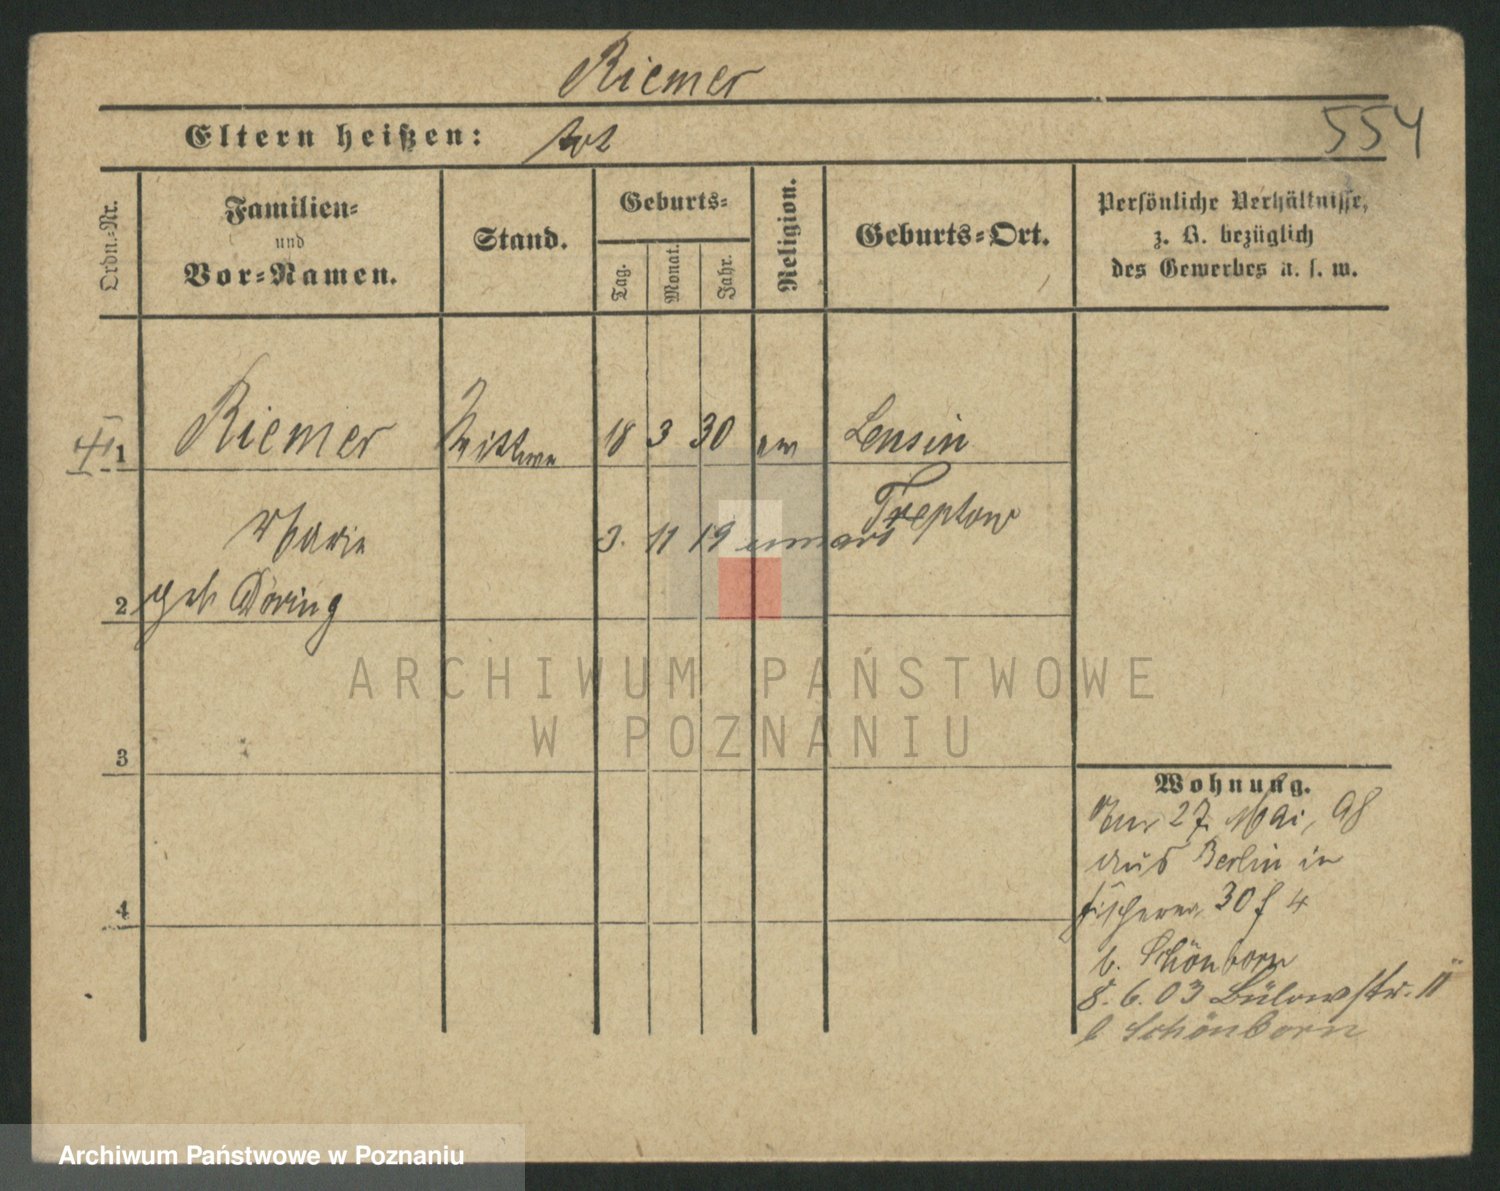 Riemer
Eltern heißen: tot
554
Ordn.-Nr.
Familien-
und
Vor-Namen.
Stand.
Geburts-
Tag.
Monat.
Jahr.
Religion.
Geburts-Ort.
Persönliche Verhältnisse,
z. B. bezüglich
des Gewerbes u. s. w.
1 Riemer Wittwe 18 3 30 ev Lensin
Treptow
Marie 3. 11 19
2 geb Döring
3
4
Wohnung.
27. Mai, 98
aus Berlin in
30 4
b. Schönborn
8. 6. 03 Bülowstr. 11
b Schönborn
ARCHIWUM PAŃSTWOWE
W POZNANIU
Archiwum Państwowe w Poznaniu